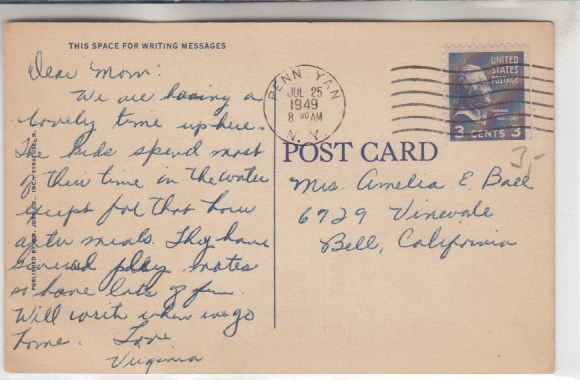 THIS SPACE FOR WRITING MESSAGES
Dear Mom:
We are having a
lovely time up here.
The kids spend most
of their time in the water
except for that hour
after meals. They have
several play mates
so have lots of fun.
Will write when we go
home. Love
Virginia
PENN YAN
JUL 25
1949
8 30 AM
N. Y.
UNITED
STATES
POSTAGE
3 CENTS 3
POST CARD
Mrs. Amelia E. Ball
6729 Vinevale
Bell, California
PUBLISHED BY